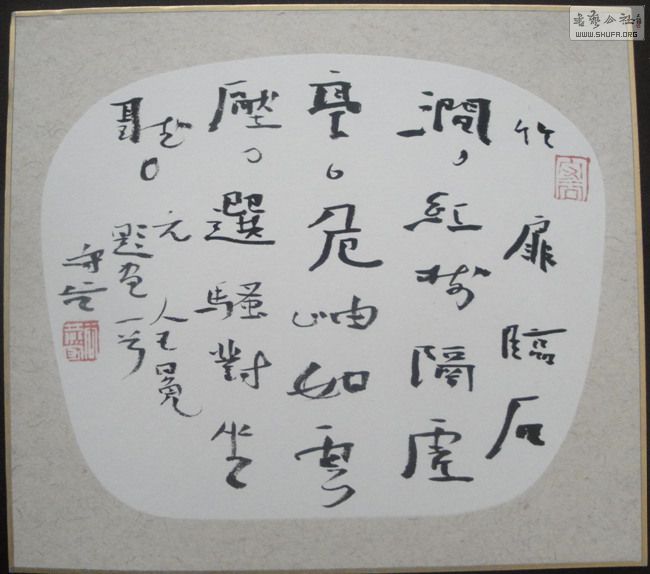 竹扉臨石
澗，紅樹隔虛
亭。危岫如雲
壓，選騷對坐
聽。
元人王冕
題畫一首
書藝公社
WWW.SHUFA.ORG